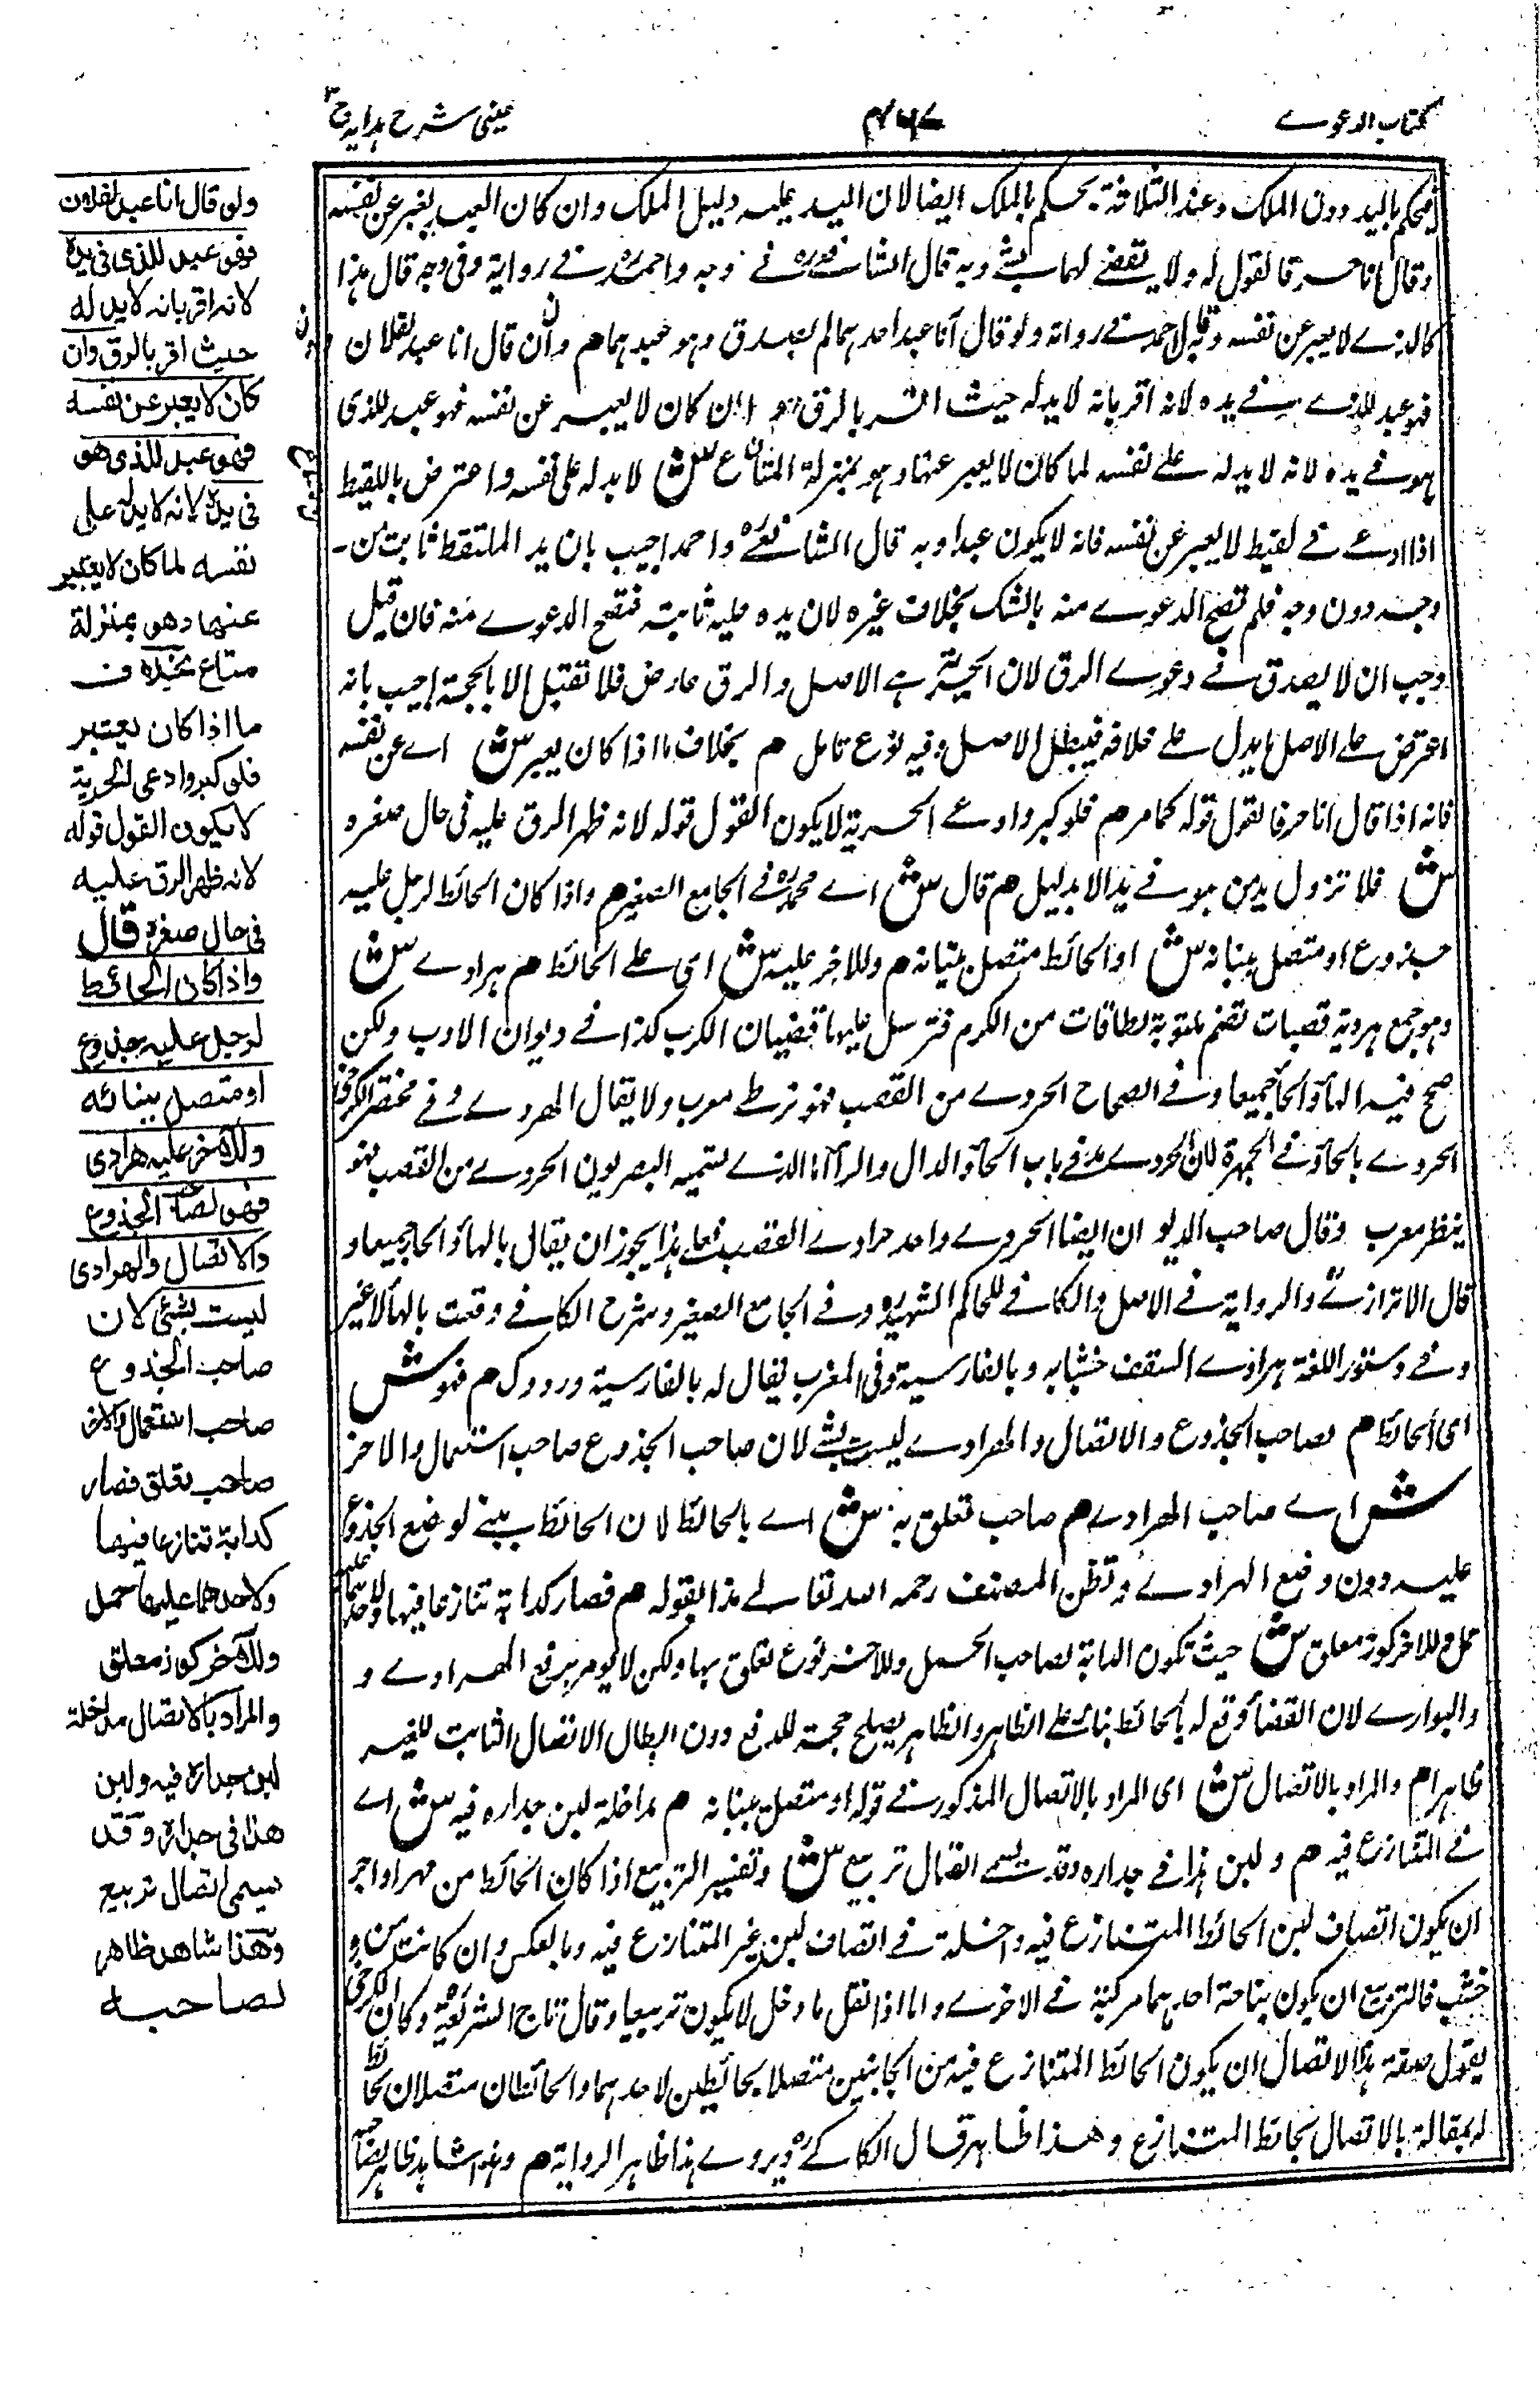 كتاب الدعوے
عینی شرح ہدایہ ج ٣
فيحكم باليد دون الملك وعند الثلاثة يحكم بالملك ايضا لان اليد عليه دليل الملك وان كان العبد يعبر عن نفسه
وقال انا حر فالقول له ولا يقضے لهما بشئ وبه قال الشافعي في وجه واحمد في رواية وفي وجه قال هذا
كالذے لا يعبر عن نفسه لاحمد في رواية ولو قال انا عبد احدهما لم يصدق وهو عبدهما م وان قال انا عبد لفلان
فهو عبد للذے في يده لانه اقر بانه لا يد له حيث اقر بالرق م وان كان لا يعبر عن نفسه فهو عبد للذى
هو في يده لانه لا يد له علے نفسه لما كان لا يعبر عنها وهو بمنزلة المتاع ش لا يد له على نفسه واعترض باللقيط
اذا ادعے في لقيط لا يعبر عن نفسه فانه لا يكون عبدا وبه قال الشافعي واحمد اجيب بان يد الملتقط ثابت من
وجه دون وجه فلم تصح الدعوے منه بالشك بخلاف غيره لان يده عليه ثابتة فتصح الدعوے منه فان قيل
وجب ان لا يصدق في دعوے الرق لان الحرية هے الاصل والرق عارض فلا تقبل الا بالحجة اجيب بانه
اعترض على الاصل ما يدل علے خلافه فيبطل الاصل وفيه نوع تامل م بخلاف ما اذا كان يعبر ش اے عن نفسه
فانه اذا قال انا حر فالقول قوله كما مر م فلو كبر وادعے الحرية لا يكون القول قوله لانه ظهر الرق عليه في حال صغره
ش فلا تزول يد من هو في يده الا بدليل م قال ش اے محمد في الجامع الصغير م واذا كان الحائط لرجل عليه
جذوع او متصل ببنائه ش او الحائط متصل ببنائه م وللاخر عليه ش اى علے الحائط م هرادے ش
وهو جمع هردية قصبات تضم ملتوية بطاقات من الكرم فترسل عليها قضبان الكرم كذا في ديوان الادب ولكن
صحح فيه الهاء والحاء جميعا وفي الصحاح الحردے من القصب فهو نبطے معرب ولا يقال الهردے وفي مختصر الكرخي
الحردے بالحاء وفي الجمهرة لابن في باب الحاء والدال والراء اما الذے يسميه البصريون الحردے من القصب فهو
نبطے معرب وقال صاحب الديوان ايضا الحردے واحد حرادے القصب فعلے هذا يجوز ان يقال بالهاء والحاء جميعا و
قال الاترازي والرواية في الاصل والكافي للحاكم الشهيد وفي الجامع الصغير وشرح الكافي وقعت بالهاء لا غير
وفي دستور اللغة هرادے السقف خشابه وبالفارسية وفي المغرب يقال له بالفارسية وردوك م فهو ش
اى الحائط م لصاحب الجذوع والاتصال والهرادے ليست بشئ لان صاحب الجذوع صاحب استعمال والاخر
ش اے صاحب الهرادے م صاحب تعلق به ش اے بالحائط لان الحائط يبنے لوضع الجذوع
عليه دون وضع الهرادے وتظن المصنف رحمه الله تعالے هذا بقوله م فصار كدابة تنازعا فيها ولاحدهما عليها
حمل وللاخر كوز معلق ش حيث تكون الدابة لصاحب الحمل وللاخر نوع تعلق بها ولكن لا يومر برفع الهرادے و
والبوارے لان القضاء وقع له بالحائط بناء على الظاهر والظاهر يصلح حجة للدفع دون ابطال الاتصال الثابت للغير
ظاهرا م والمراد بالاتصال ش اى المراد بالاتصال المذكور في قوله او متصل ببنائه م مداخلة لبن جداره فيه ش اے
في التنازع فيه م ولبن هذا في جداره وقد يسمے اتصال تربيع ش وتفسير التربيع اذا كان الحائط من مدر او اجر
ان يكون انصاف لبن الحائط المتنازع فيه داخلة في انصاف لبن غير المتنازع فيه وبالعكس وان كانت من
خشب فالتربيع ان يكون ساحة احدهما مركبة في الاخرے واما اذا نقل ما دخل لا يكون تربيعا وقال تاج الشريعة وكان الكرخي
يقول صفة هذا الاتصال ان يكون الحائط المتنازع فيه من الجانبين متصلا بحائطين لاحدهما والحائطان متصلان بحائط
له بمقالة بالاتصال بحائط المتنازع وهذا ظاهر قال الكاكي ويروے هذا ظاهر الرواية م وهذا شاهد ظاهر لصاحبه
ولو قال انا عبد لفلان
فهو عبد للذى فى يده
لانه اقر بانه لا يد له
حيث اقر بالرق وان
كان لا يعبر عن نفسه
فهو عبد للذى هو
فى يده لانه لا يد له على
نفسه لما كان لا يعبر
عنها وهو بمنزلة
متاع بخلاف
ما اذا كان يعتبر
فلو كبر وادعى الحرية
لا يكون القول قوله
لانه ظهر الرق عليه
فى حال صغره قال
واذا كان الحائط
لرجل عليه جذوع
او متصل ببنائه
وللآخر عليه هرادى
فهو لصاحب الجذوع
والاتصال والهرادى
ليست بشئ لان
صاحب الجذوع
صاحب استعمال والاخر
صاحب تعلق فصار
كدابة تنازعا فيها
ولاحدهما عليها حمل
وللآخر كوز معلق
والمراد بالاتصال مداخلة
لبن جداره فيه ولبن
هذا فى جداره وقد
يسمى اتصال تربيع
وهذا شاهد ظاهر
لصاحبه